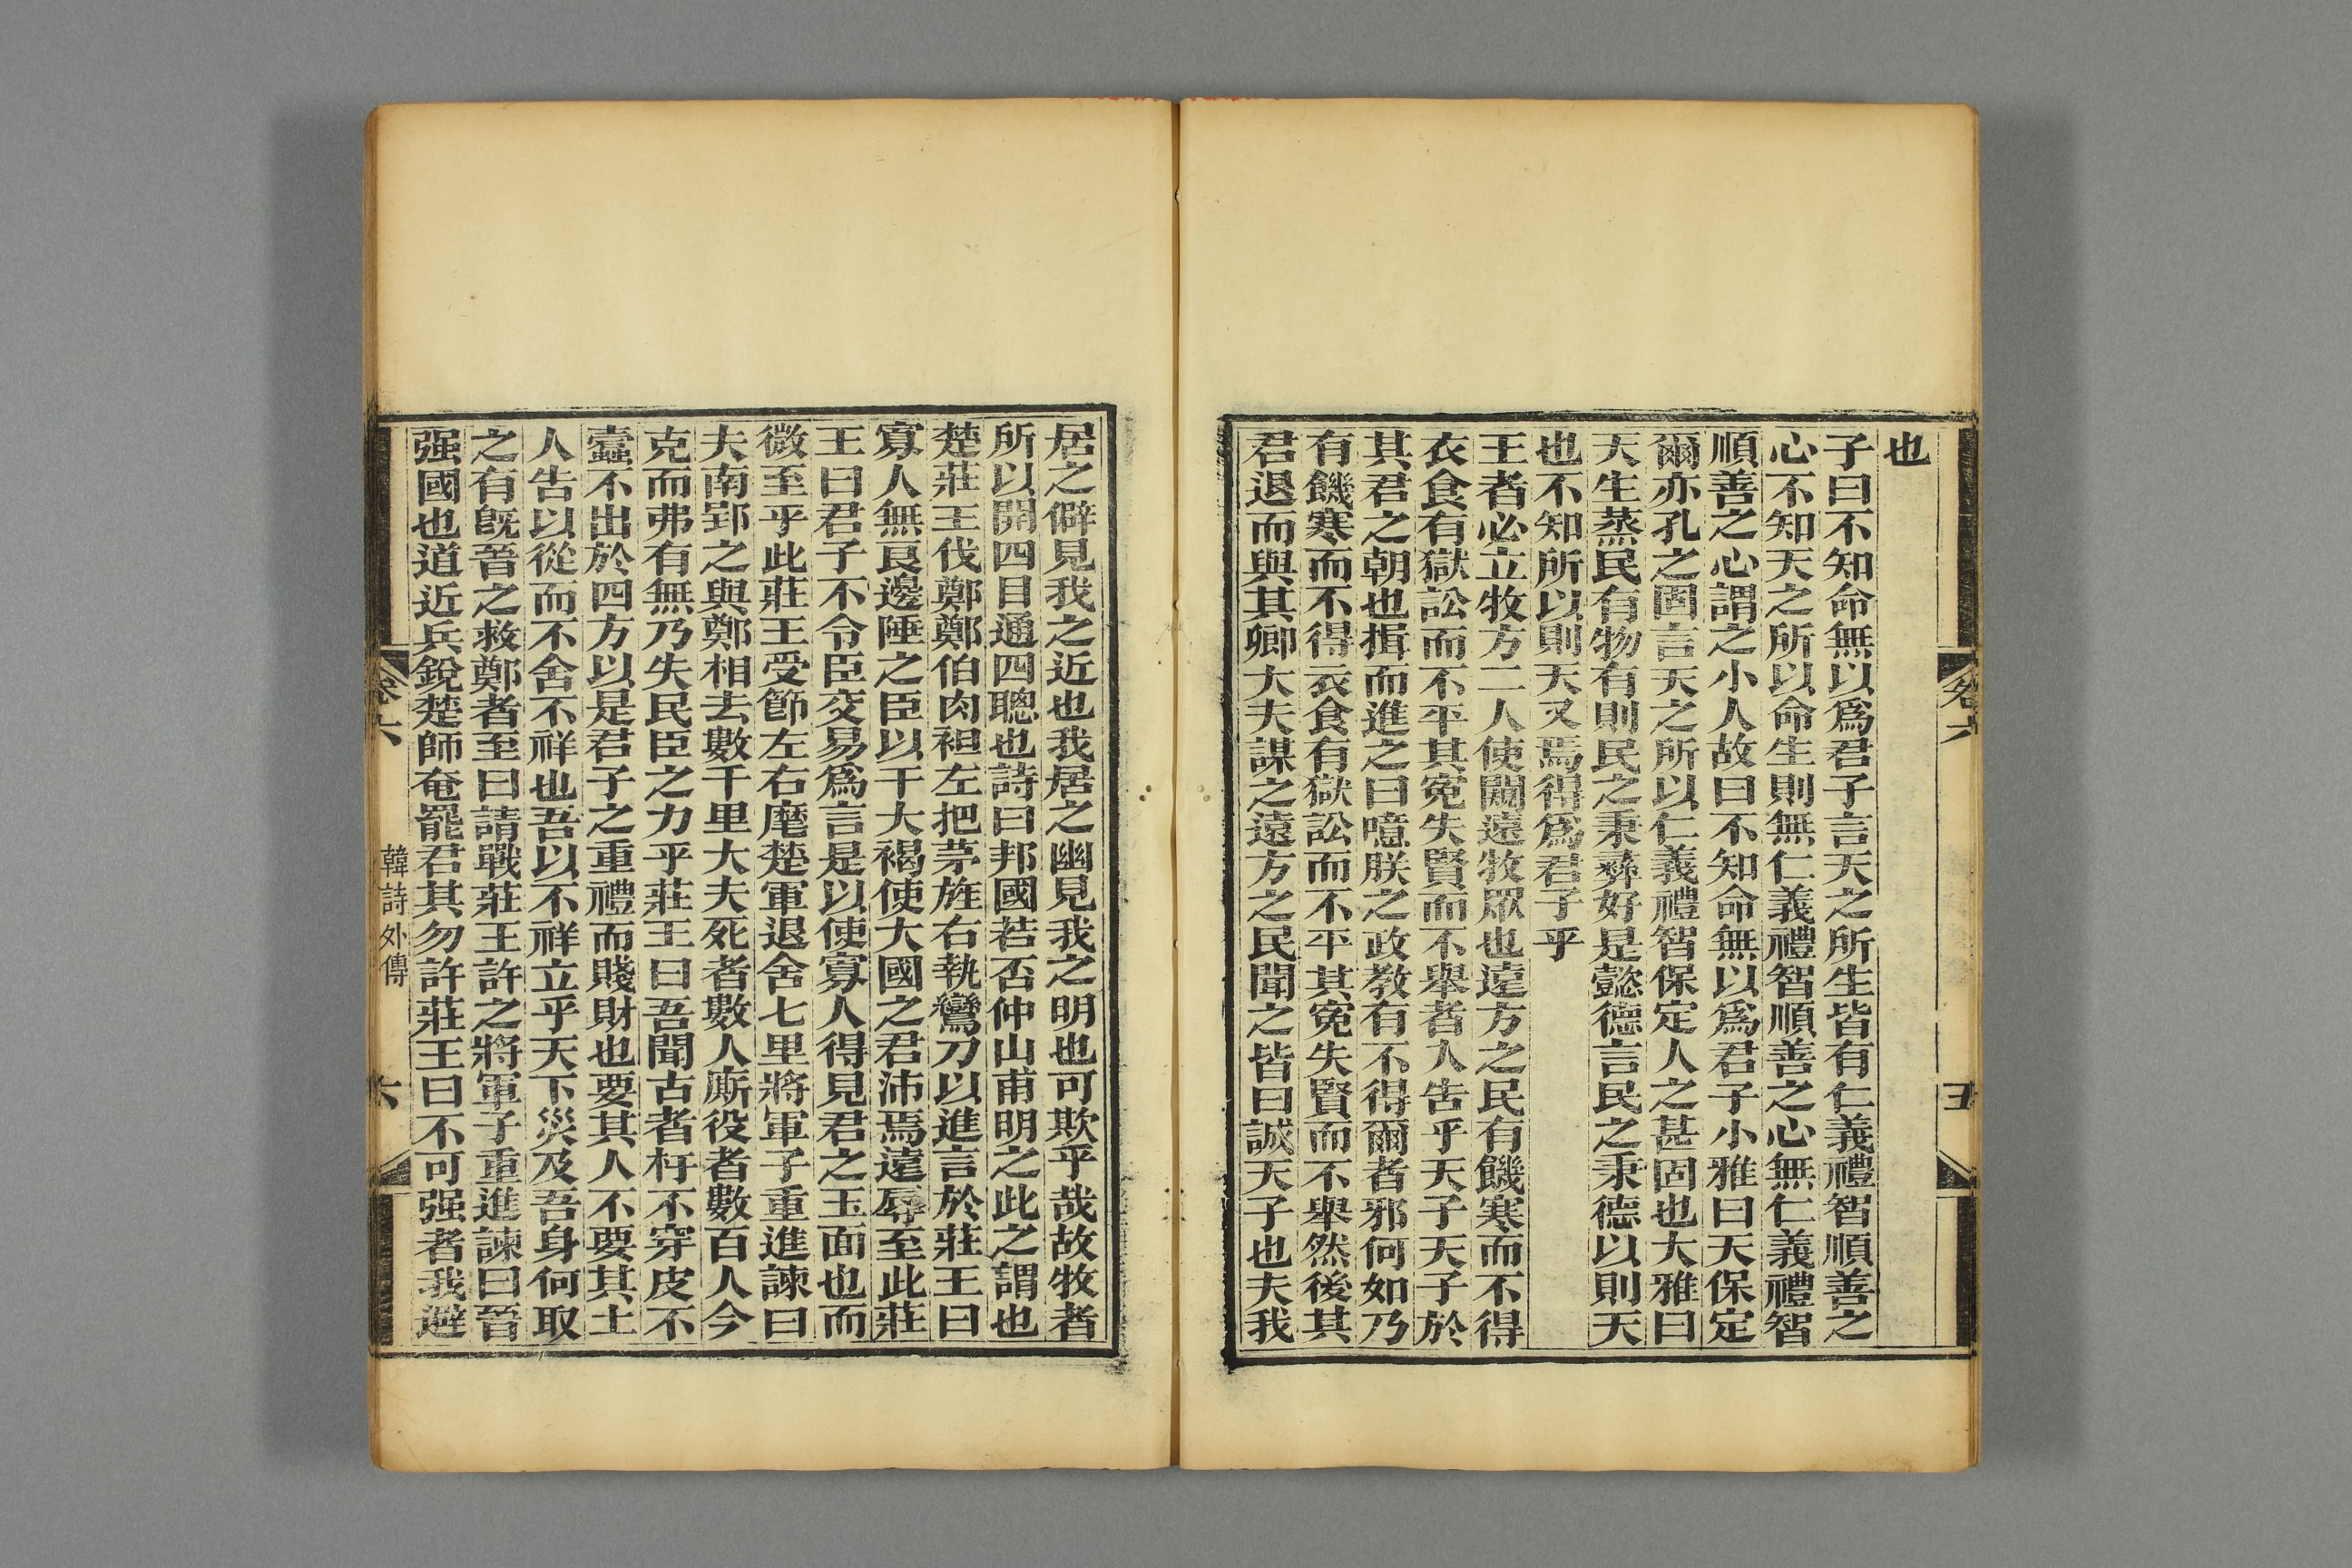 卷六
五
也
子曰不知命無以爲君子言天之所生皆有仁義禮智順善之
心不知天之所以命生則無仁義禮智順善之心無仁義禮智
順善之心謂之小人故曰不知命無以爲君子小雅曰天保定
爾亦孔之固言天之所以仁義禮智保定人之甚固也大雅曰
天生蒸民有物有則民之秉彝好是懿德言民之秉德以則天
也不知所以則天又焉得爲君子乎
王者必立牧方二人使闚遠牧眾也遠方之民有饑寒而不得
衣食有獄訟而不平其冤失賢而不舉者入告乎天子天子於
其君之朝也揖而進之曰噫朕之政教有不得爾者邪何如乃
有饑寒而不得衣食有獄訟而不平其冤失賢而不舉然後其
君退而與其卿大夫謀之遠方之民聞之皆曰誠天子也夫我
居之僻見我之近也我居之幽見我之明也可欺乎哉故牧者
所以開四目通四聰也詩曰邦國若否仲山甫明之此之謂也
楚莊王伐鄭鄭伯肉袒左把茅旌右執鸞刀以進言於莊王曰
寡人無良邊陲之臣以干大褐使大國之君沛焉遠辱至此莊
王曰君子不令臣交易爲言是以使寡人得見君之玉面也而
微至乎此莊王受節左右麾楚軍退舍七里將軍子重進諫曰
夫南郢之與鄭相去數千里大夫死者數人廝役者數百人今
克而弗有無乃失民臣之力乎莊王曰吾聞古者杅不穿皮不
蠹不出於四方以是君子之重禮而賤財也要其人不要其土
人告以從而不舍不祥也吾以不祥立乎天下災及吾身何取
之有旣晉之救鄭者至曰請戰莊王許之將軍子重進諫曰晉
强國也道近兵銳楚師奄罷君其勿許莊王曰不可强者我避
卷六
韓詩外傳
六